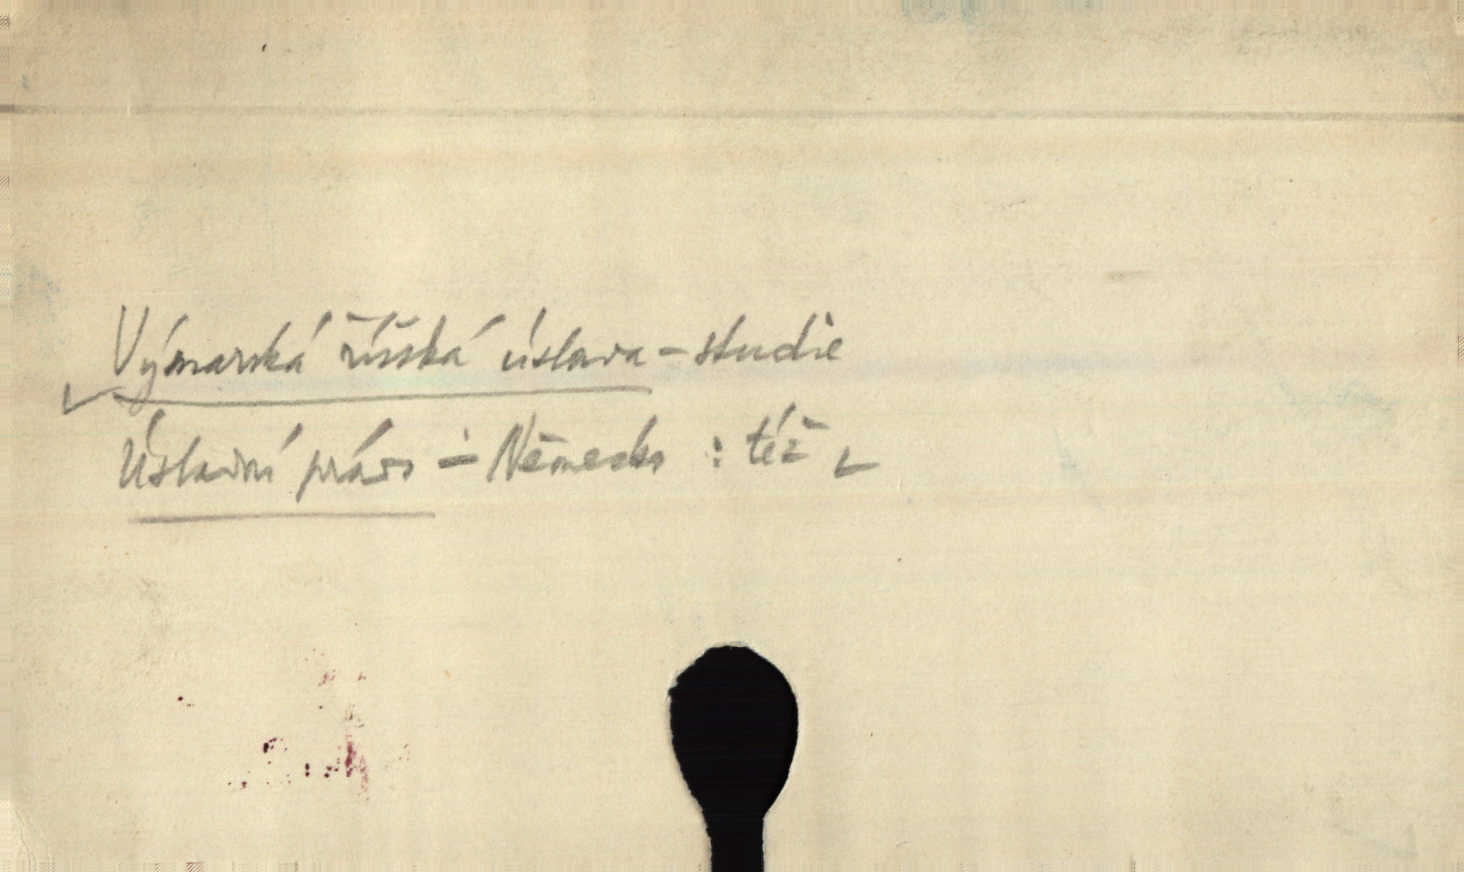 Výmarská říšská ústava - studie
Ústavní právo - Německo : též